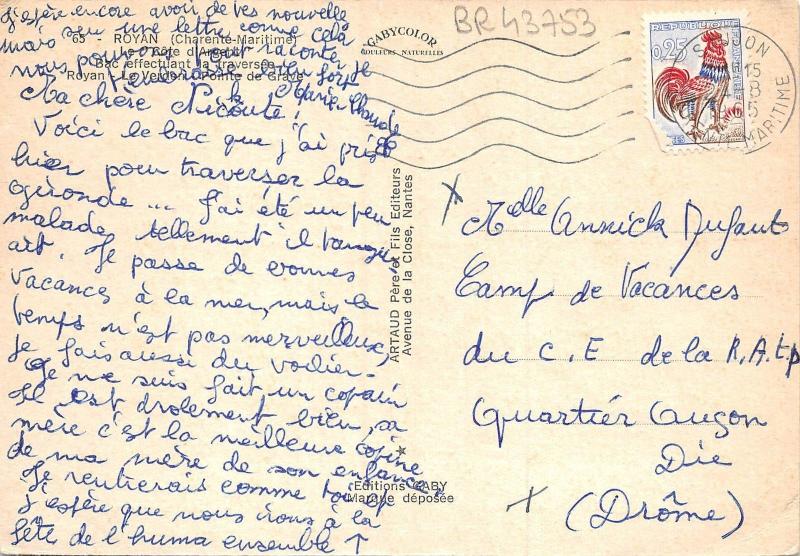 J'espère encore avoir de tes nouvelles
mais sur une lettre comme cela
nous pourrons tout raconter
Je t'embrasse très fort
Marie Claude
65 ROYAN (Charente-Maritime)
Côte d'Argent
Bac effectuant la traversée
Royan - Le Verdon - Pointe de Grave
GABYCOLOR
COULEURS NATURELLES
BR 43753
REPUBLIQUE FRANÇAISE
0,25
15
8
MARITIME
Ma chère
Voici le bac que j'ai pris
hier pour traverser la
Gironde ... J'ai été un peu
malade, tellement il tanguait
Je passe de bonnes
vacances à la mer, mais le
temps n'est pas merveilleux,
Je fais aussi du voilier.
Je me suis fait un copain
Il est drolement bien, sa
mère c'est la meilleure copine
de ma mère de son enfance
Je rentrerais comme toi et
J'espère que nous irons à la
fête de l'huma ensemble ↑
ARTAUD Père et Fils Editeurs
Avenue de la Close, Nantes
Editions GABY
Marque déposée
Melle Annick Dufaut
Camp de Vacances
du C.E de la R.A.t.p
Quartier Auzon
Die
(Drôme)